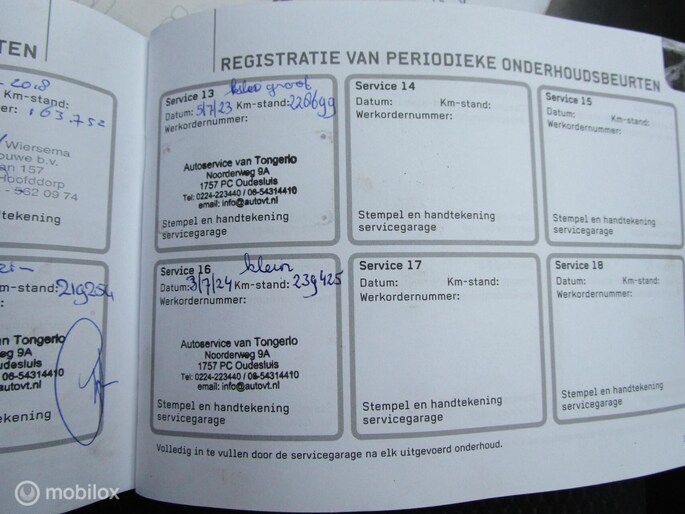 TEN
2018
Km-stand:
163.752
Wiersema
ouwe b.v.
an 157
Hoofddorp
- 562 09 74
tekening
m-stand: 219254
van Tongerlo
eg 9A
udesluis
/ 06-54314410
autovt.nl
ekening
REGISTRATIE VAN PERIODIEKE ONDERHOUDSBEURTEN
Service 13 klein groot
Datum: 5/7/23 Km-stand: 226699
Werkordernummer:
Autoservice van Tongerlo
Noorderweg 9A
1757 PC Oudesluis
Tel: 0224-223440 / 06-54314410
email: info@autovt.nl
Stempel en handtekening
servicegarage
Service 14
Datum: Km-stand:
Werkordernummer:
Stempel en handtekening
servicegarage
Service 15
Datum: Km-stand:
Werkordernummer:
Stempel en handtekening
servicegarage
Service 16 klein
Datum: 3/7/24 Km-stand: 239425
Werkordernummer:
Autoservice van Tongerlo
Noorderweg 9A
1757 PC Oudesluis
Tel: 0224-223440 / 06-54314410
email: info@autovt.nl
Stempel en handtekening
servicegarage
Service 17
Datum: Km-stand:
Werkordernummer:
Stempel en handtekening
servicegarage
Service 18
Datum: Km-stand:
Werkordernummer:
Stempel en handtekening
servicegarage
Volledig in te vullen door de servicegarage na elk uitgevoerd onderhoud.
mobilox